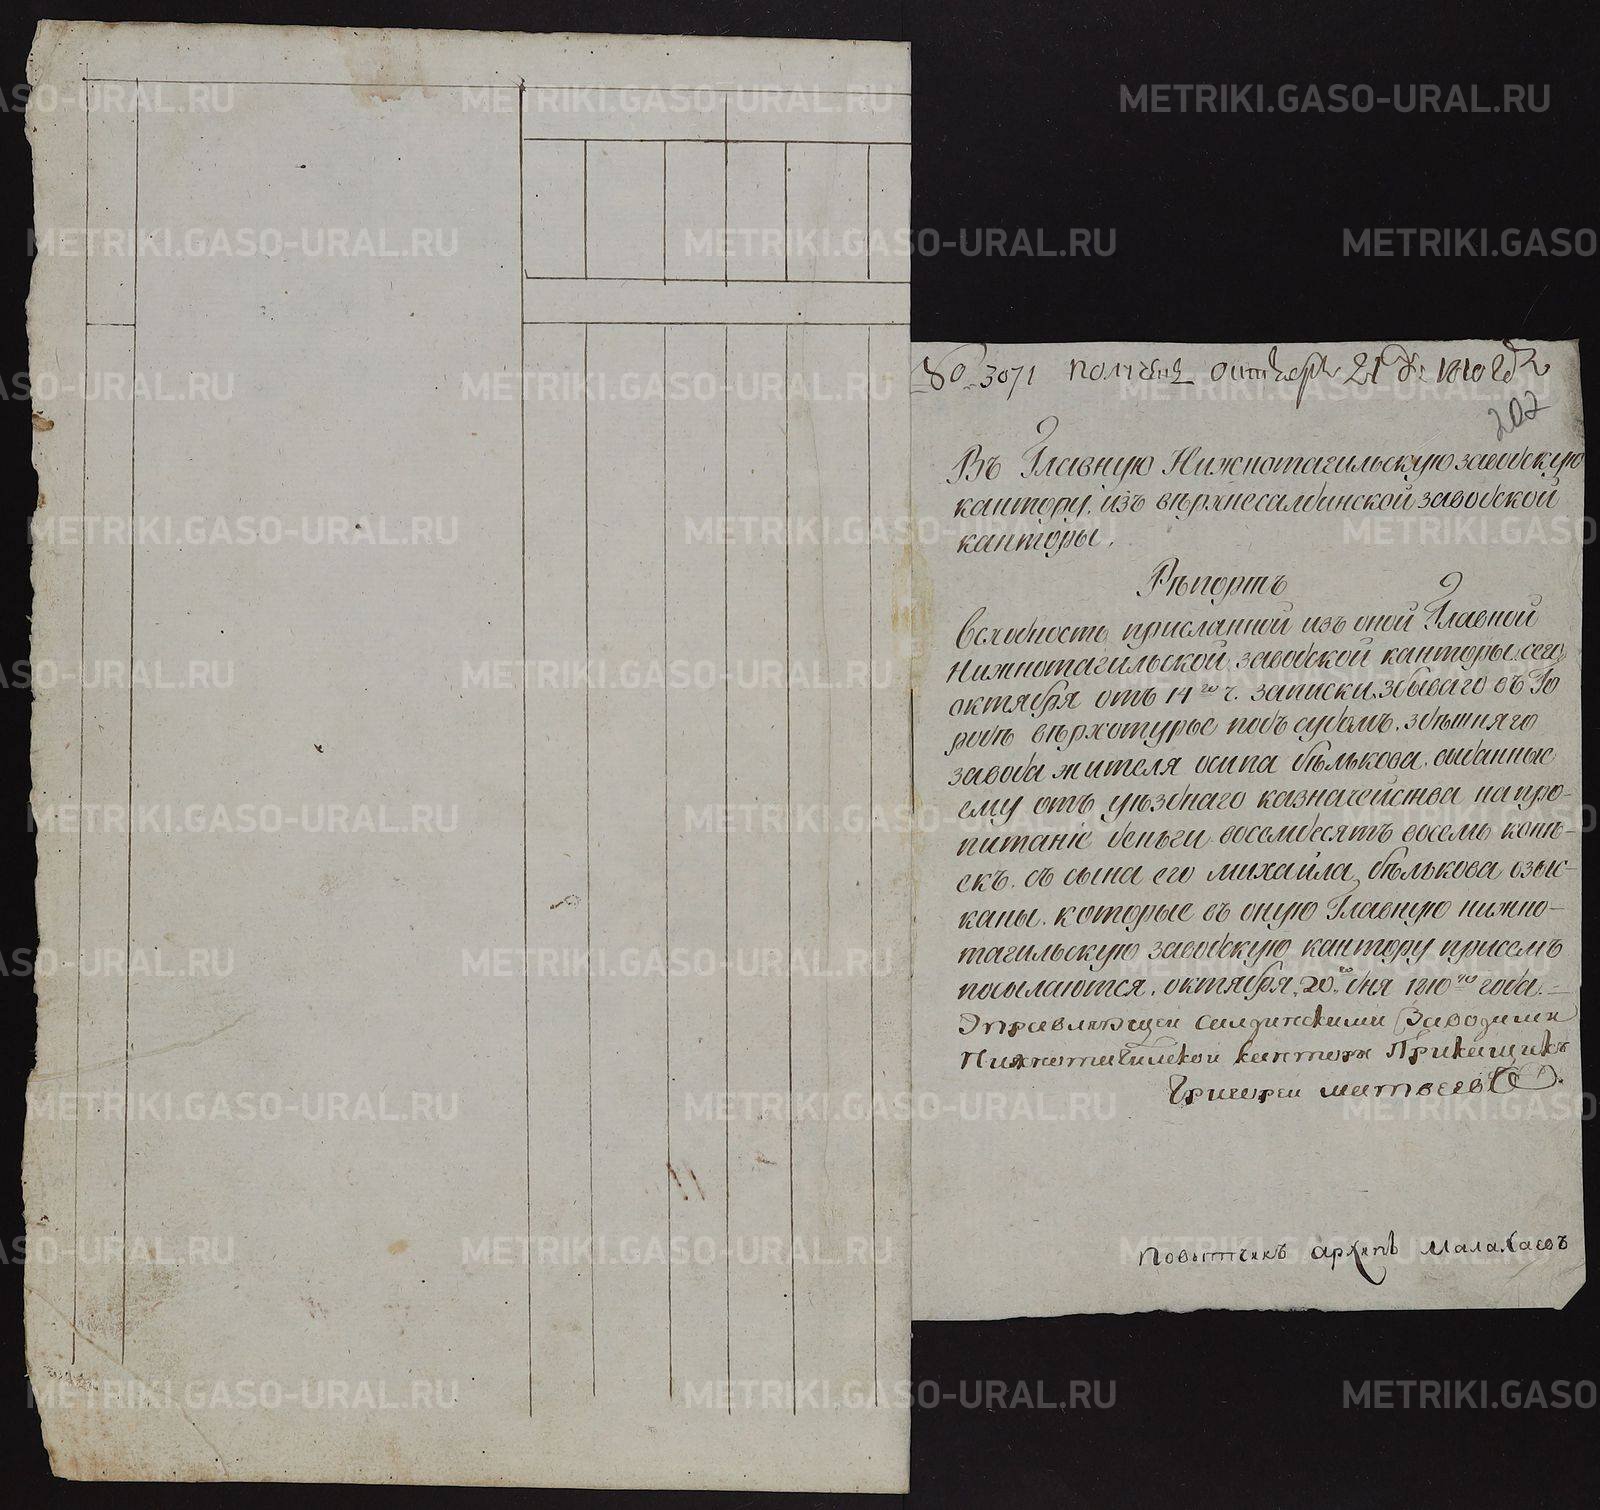 № 3071 получена октября 21 д: 1810 году
207
Въ Главную Нижнотагильскую заводскую
кантору, изъ верхнесалдинской заводской
канторы.
Рѣпортъ
Вслѣдность присланной изъ оной Главной
Нижнотагильской заводской канторы, сего
октября отъ 14го ч. записки, збываго въ Го
родѣ верхотурье подъ судомъ, здѣшняго
завода жителя осипа бѣлькова, выданные
ему отъ уѣзднаго казначейства на про-
питаніе деньги восемдесятъ восемь копѣ-
екъ, съ сына его михайла бѣлькова взыс-
каны, которые въ оную Главную нижно-
тагильскую заводскую кантору присемъ
посылаются. октября, 20го дня 1810го года.
Управляющей салдинскими Заводами
Нижнотагилской канторы Прикащикъ
Григореи матвеевъ
Повытчикъ архипъ Малахаевъ
METRIKI.GASO-URAL.RU